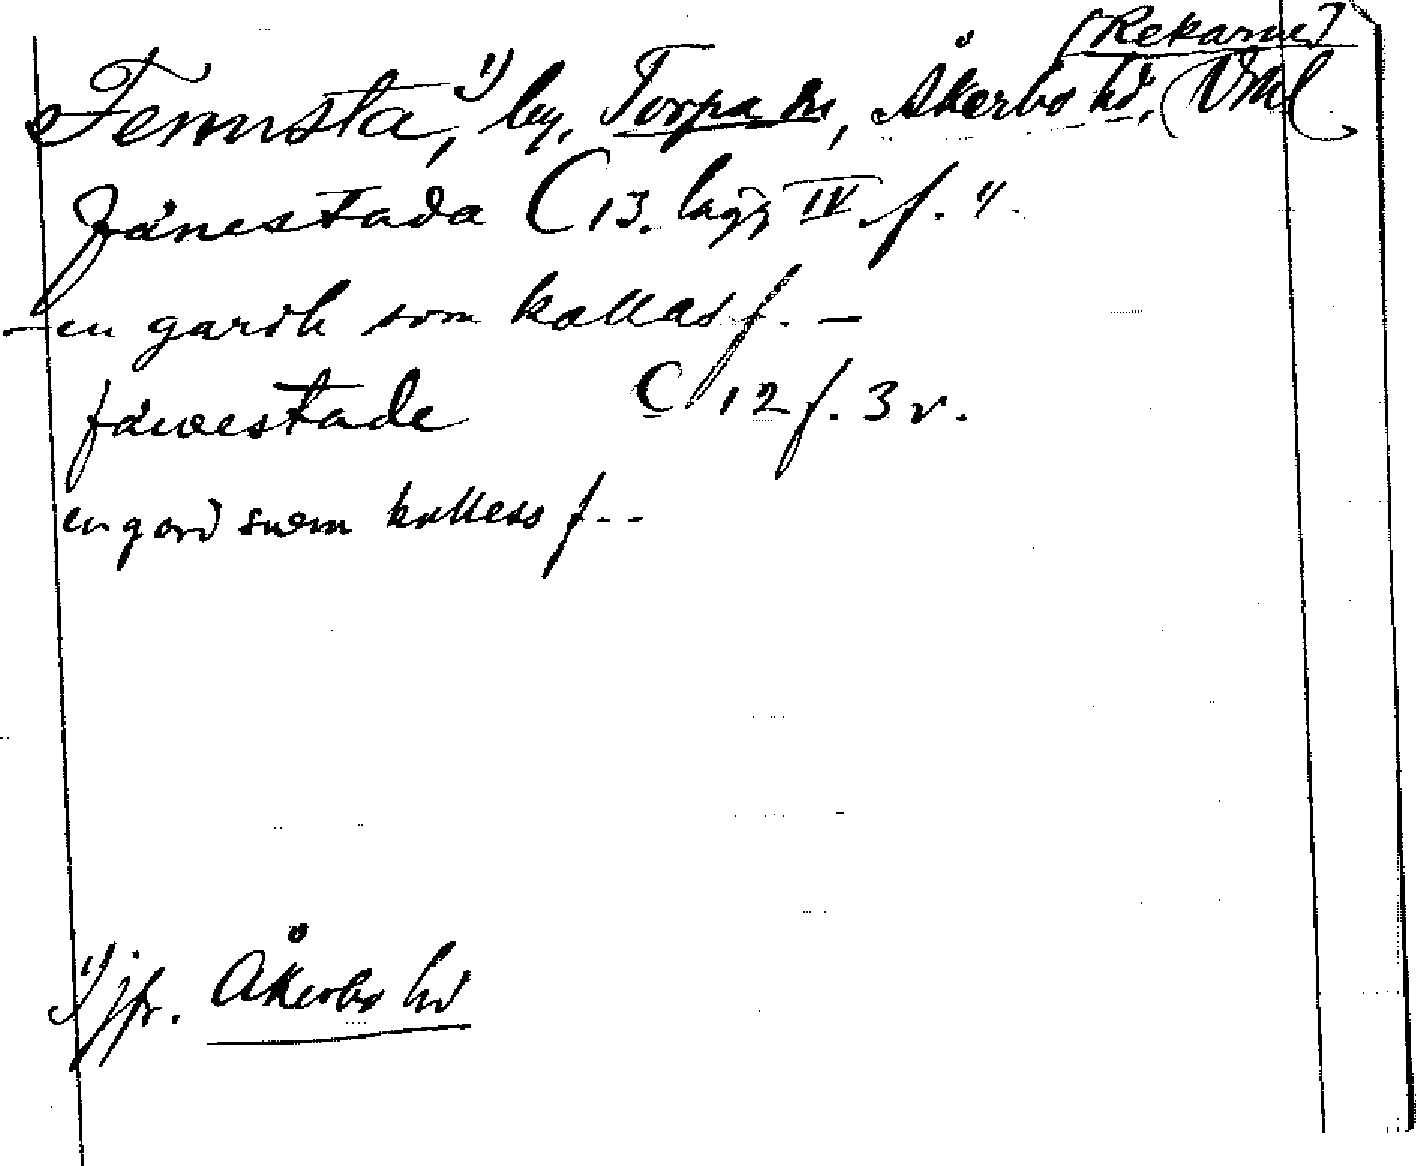 [Rekarne]
Femsta,¹⁾ by, Torpa sn, Åkerbo hd, Vml
fánestada C 13. lägg IV f. 11.
en gardh som kallas f. –
fáwestade C 12 f. 3 v.
en gard suem kalless f. - -
¹⁾ jfr. Åkerbo hd